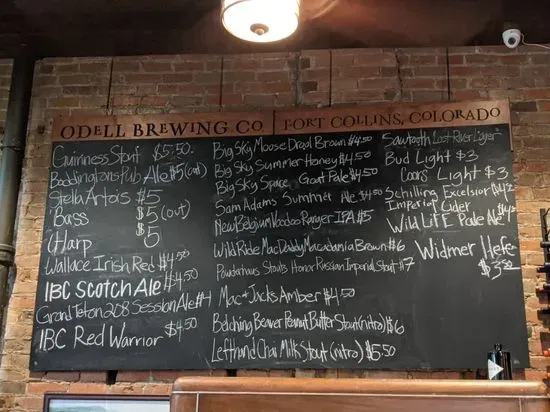 ODELL BREWING CO. FORT COLLINS, COLORADO
Guinness Stout $5.50
Boddingtons Pub Ale $5 (out)
Stella Artois $5
Bass $5 (out)
Harp $5
Wallace Irish Red $4.50
IBC Scotch Ale $4.50
Grand Teton 208 Session Ale $4
IBC Red Warrior $4.50
Big Sky Moose Drool Brown $4.50
Big Sky Summer Honey $4.50
Big Sky Space Goat Pale $4.50
Sam Adams Summer Ale $4.50
New Belgium Voodoo Ranger IPA $5
Wild Ride Mac Daddy Macadamia Brown $6
Powderhaus Stouts Honor Russian Imperial Stout $7
Mac & Jacks Amber $4.50
Belching Beaver Peanut Butter Stout (nitro) $6
Lefthand Chai Milk Stout (nitro) $5.50
"Sawtooth Lost River Lager"
Bud Light $3
Coors Light $3
Schilling Excelsior
Imperial Cider
Wild Life Pale Ale
Widmer Hefe